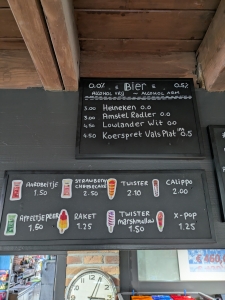 0.0% & Bier & 0.5%
ALCOHOL VRIJ ~ ALCOHOL ARM
3.00 Heineken 0.0
3.00 Amstel Radler 0.0
4.50 Lowlander Wit 0.0
4.50 Koerspret Vals Plat 0.5
AARDBEITJE 1.50
STRAWBERRY CHEESECAKE 2.50
TWISTER 2.10
CALIPPO 2.00
APPELTJEPEER 1.50
RAKET 1.25
TWISTER marshmallow 1.50
X-POP 1.25